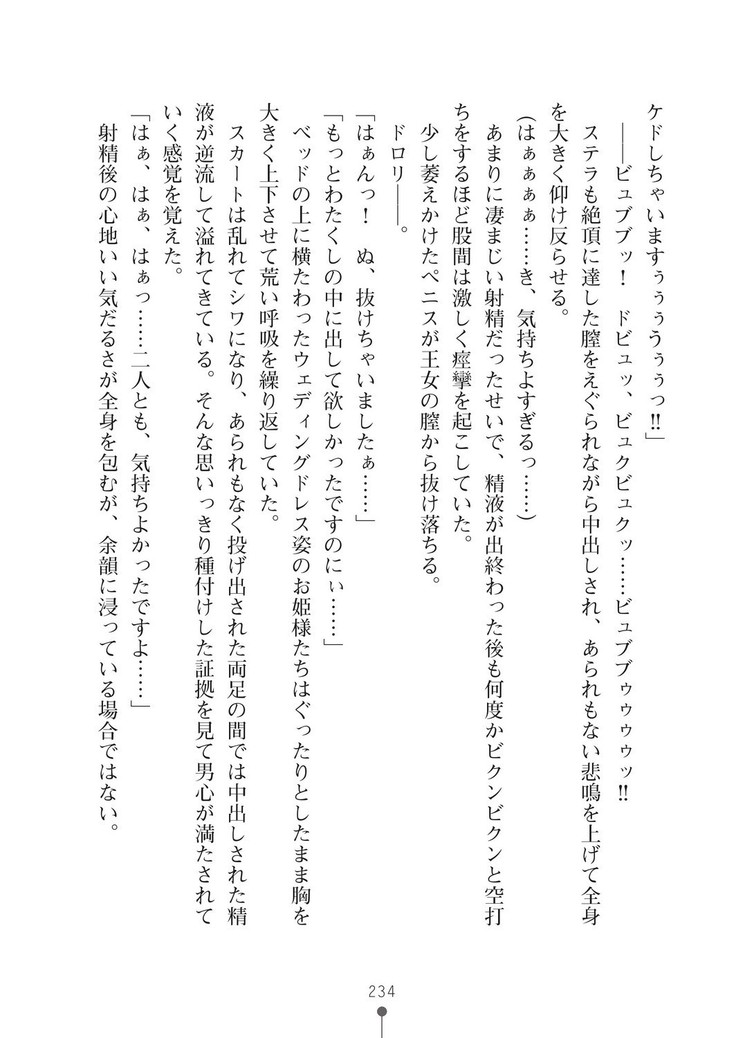 ケドしちゃいますぅぅぅうぅぅっ!!」
――ビュブブッ！　ドビュッ、ビュクビュクッ……ビュブブゥゥゥゥッ!!
ステラも絶頂に達した膣をえぐられながら中出しされ、あられもない悲鳴を上げて全身
を大きく仰け反らせる。
(はぁぁぁぁ……き、気持ちよすぎるっ……)
あまりに凄まじい射精だったせいで、精液が出終わった後も何度かビクンビクンと空打
ちをするほど股間は激しく痙攣を起こしていた。
少し萎えかけたペニスが王女の膣から抜け落ちる。
ドロリ――。
「はぁんっ！　ぬ、抜けちゃいましたぁ……」
「もっとわたくしの中に出して欲しかったですのにぃ……」
ベッドの上に横たわったウェディングドレス姿のお姫様たちはぐったりとしたまま胸を
大きく上下させて荒い呼吸を繰り返していた。
スカートは乱れてシワになり、あられもなく投げ出された両足の間では中出しされた精
液が逆流して溢れてきている。そんな思いっきり種付けした証拠を見て男心が満たされて
いく感覚を覚えた。
「はぁ、はぁ、はぁっ……二人とも、気持ちよかったですよ……」
射精後の心地いい気だるさが全身を包むが、余韻に浸っている場合ではない。
234